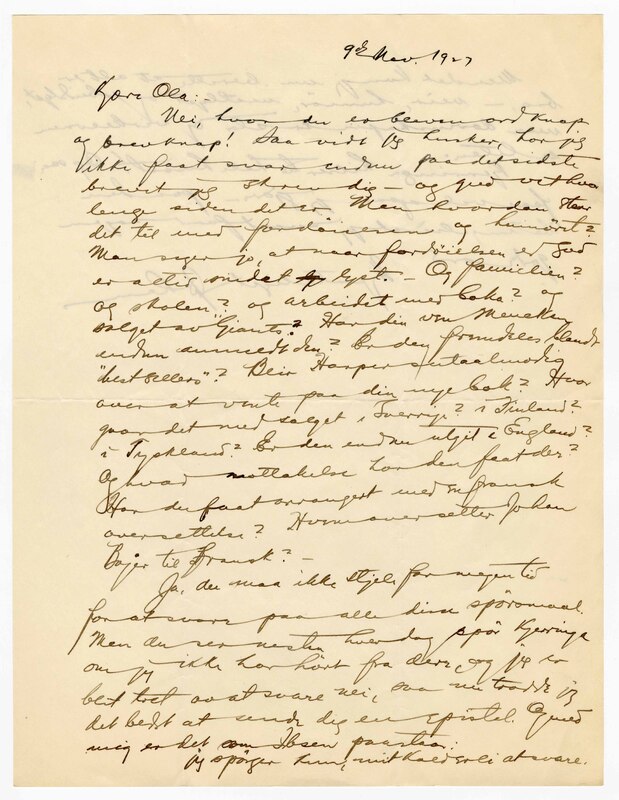 9de Nov. 1927
Kjære Ola:-
Nei, hvor du er bleven ordknap
og brevknap! Saa vidt jeg husker, har jeg
ikke faat svar endnu paa det sidste
brevet jeg skrev dig – og gud vet hvor
lenge siden det er. Men hvordan staar
det til med fordøielsen og humöret?
Man siger jo, at naar fordøielsen er god
er altid smedet lyst. – Og familien?
og skolen? og arbeidet med boka? og
salget av Giants? Har din ven Mencken
endnu anmeldt den? Er den fremdeles blandt
"best sellers"? Blir Harpers utaalmodig
over at vente paa din nye bok? Hvor
gaar det med salget i Sverige? i Finland?
i Tyskland? Er den endnu utgit i England?
Og hvad mottakelse har den faat der?
Har du faat arrangert med en fransk
oversettelse? Hvem oversetter Johan
Bojer til fransk? –
Ja, du maa ikke stjele for megen tid
for at svare paa alle disse spörsmaal.
Men du ser nesten hver dag spör Kjerringa
om jeg ikke har hört fra dere, og jeg er
blet tret av at svare nei, saa nu trodde jeg
det bedst at sende dig en epistel. Og med
mig er det som Ibsen paastaa:
jeg spörger kun, mit kald er ei at svare.